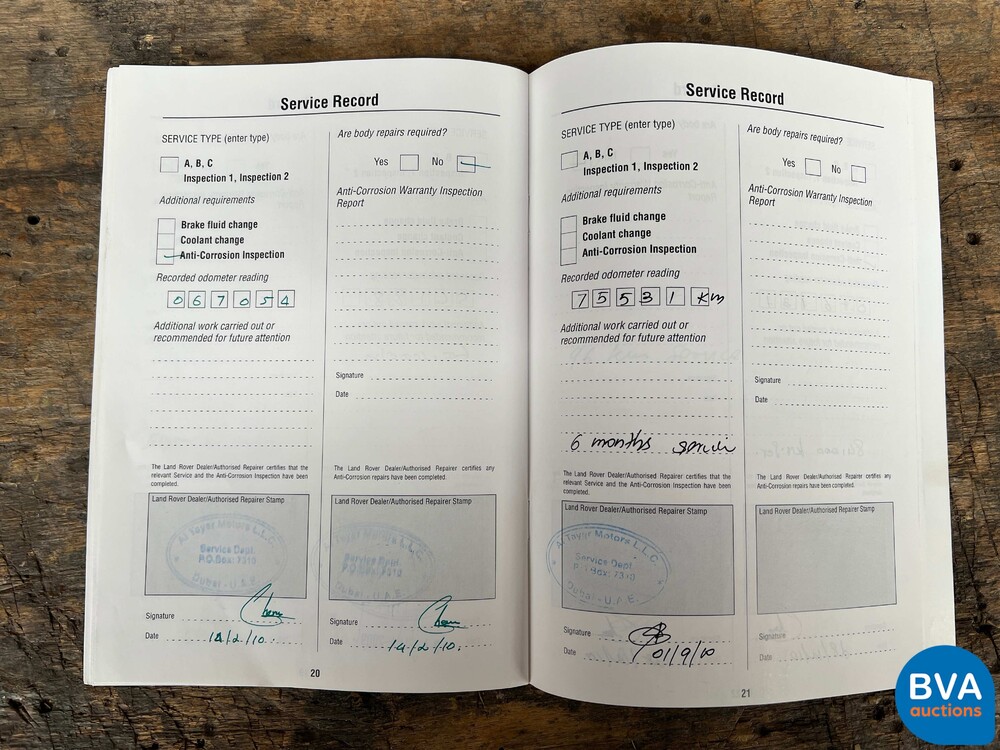 Service Record
SERVICE TYPE (enter type)
A, B, C
Inspection 1, Inspection 2
Additional requirements
Brake fluid change
Coolant change
Anti-Corrosion Inspection
Recorded odometer reading
067054
Additional work carried out or
recommended for future attention
The Land Rover Dealer/Authorised Repairer certifies that the
relevant Service and the Anti-Corrosion Inspection have been
completed.
Land Rover Dealer/Authorised Repairer Stamp
Al Tayer Motors L.L.C.
Service Dept.
P.O.Box: 7310
Dubai - U.A.E.
Signature
Date 14/2/10.
Are body repairs required?
Yes No
Anti-Corrosion Warranty Inspection
Report
Signature
Date
The Land Rover Dealer/Authorised Repairer certifies any
Anti-Corrosion repairs have been completed.
Land Rover Dealer/Authorised Repairer Stamp
Service Dept.
Dubai - U.A.E.
Signature
Date 14/2/10.
20
Service Record
SERVICE TYPE (enter type)
A, B, C
Inspection 1, Inspection 2
Additional requirements
Brake fluid change
Coolant change
Anti-Corrosion Inspection
Recorded odometer reading
75531 Km
Additional work carried out or
recommended for future attention
6 months service
The Land Rover Dealer/Authorised Repairer certifies that the
relevant Service and the Anti-Corrosion Inspection have been
completed.
Land Rover Dealer/Authorised Repairer Stamp
Al Tayer Motors L.L.C.
Service Dept
P.O.Box: 7310
Dubai - U.A.E.
Signature
Date 01/9/10
Are body repairs required?
Yes No
Anti-Corrosion Warranty Inspection
Report
Signature
Date
The Land Rover Dealer/Authorised Repairer certifies any
Anti-Corrosion repairs have been completed.
Land Rover Dealer/Authorised Repairer Stamp
Signature
Date
21
BVA
auctions